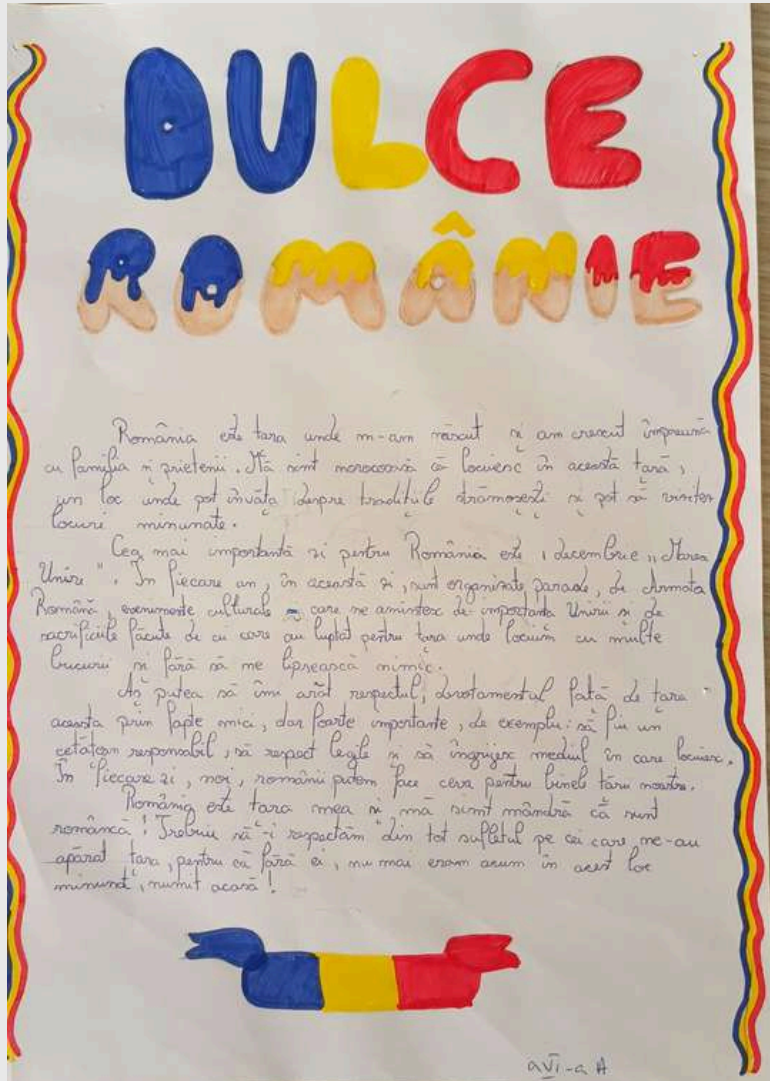 DULCE
ROMÂNIE
România este țara unde m-am născut și am crescut împreună
cu familia și prietenii. Mă simt norocoasă că locuiesc în această țară,
un loc unde pot învăța despre tradițiile strămoșești și pot să vizitez
locuri minunate.
Cea mai importantă zi pentru România este 1 decembrie „Marea
Unire”. În fiecare an, în această zi, sunt organizate parade, de Armata
Română, evenimente culturale care ne amintesc de importanța Unirii și de
sacrificiile făcute de cei care au luptat pentru țara unde locuim cu multe
bucurii și fără să ne lipsească nimic.
Aș putea să îmi arăt respectul, devotamentul față de țara
aceasta prin fapte mici, dar foarte importante, de exemplu: să fiu un
cetățean responsabil, să respect legile și să îngrijesc mediul în care locuiesc.
În fiecare zi, noi, românii putem face ceva pentru binele țării noastre.
România este țara mea și mă simt mândră că sunt
româncă! Trebuie să-i respectăm din tot sufletul pe cei care ne-au
apărat țara, pentru că fără ei, nu mai eram acum în acest loc
minunat, numit acasă!
a VI-a A